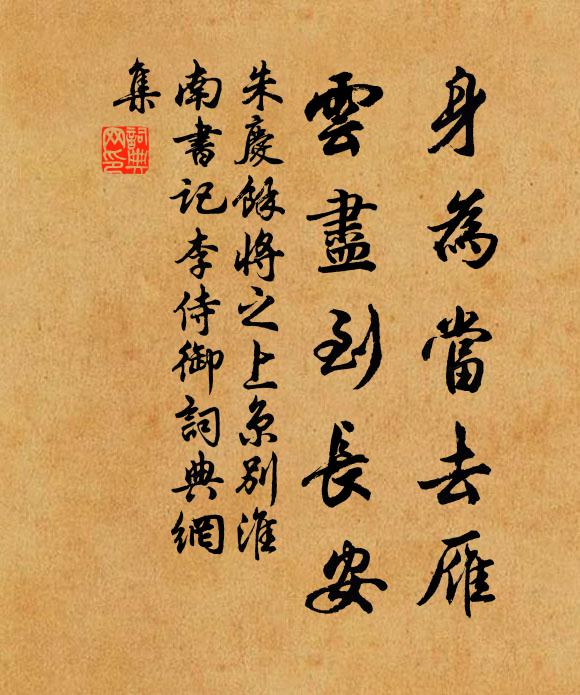 身為當去雁
雲盡到長安
朱慶餘將之上京別淮
南書記李侍御詞典網
集
詞典
网印